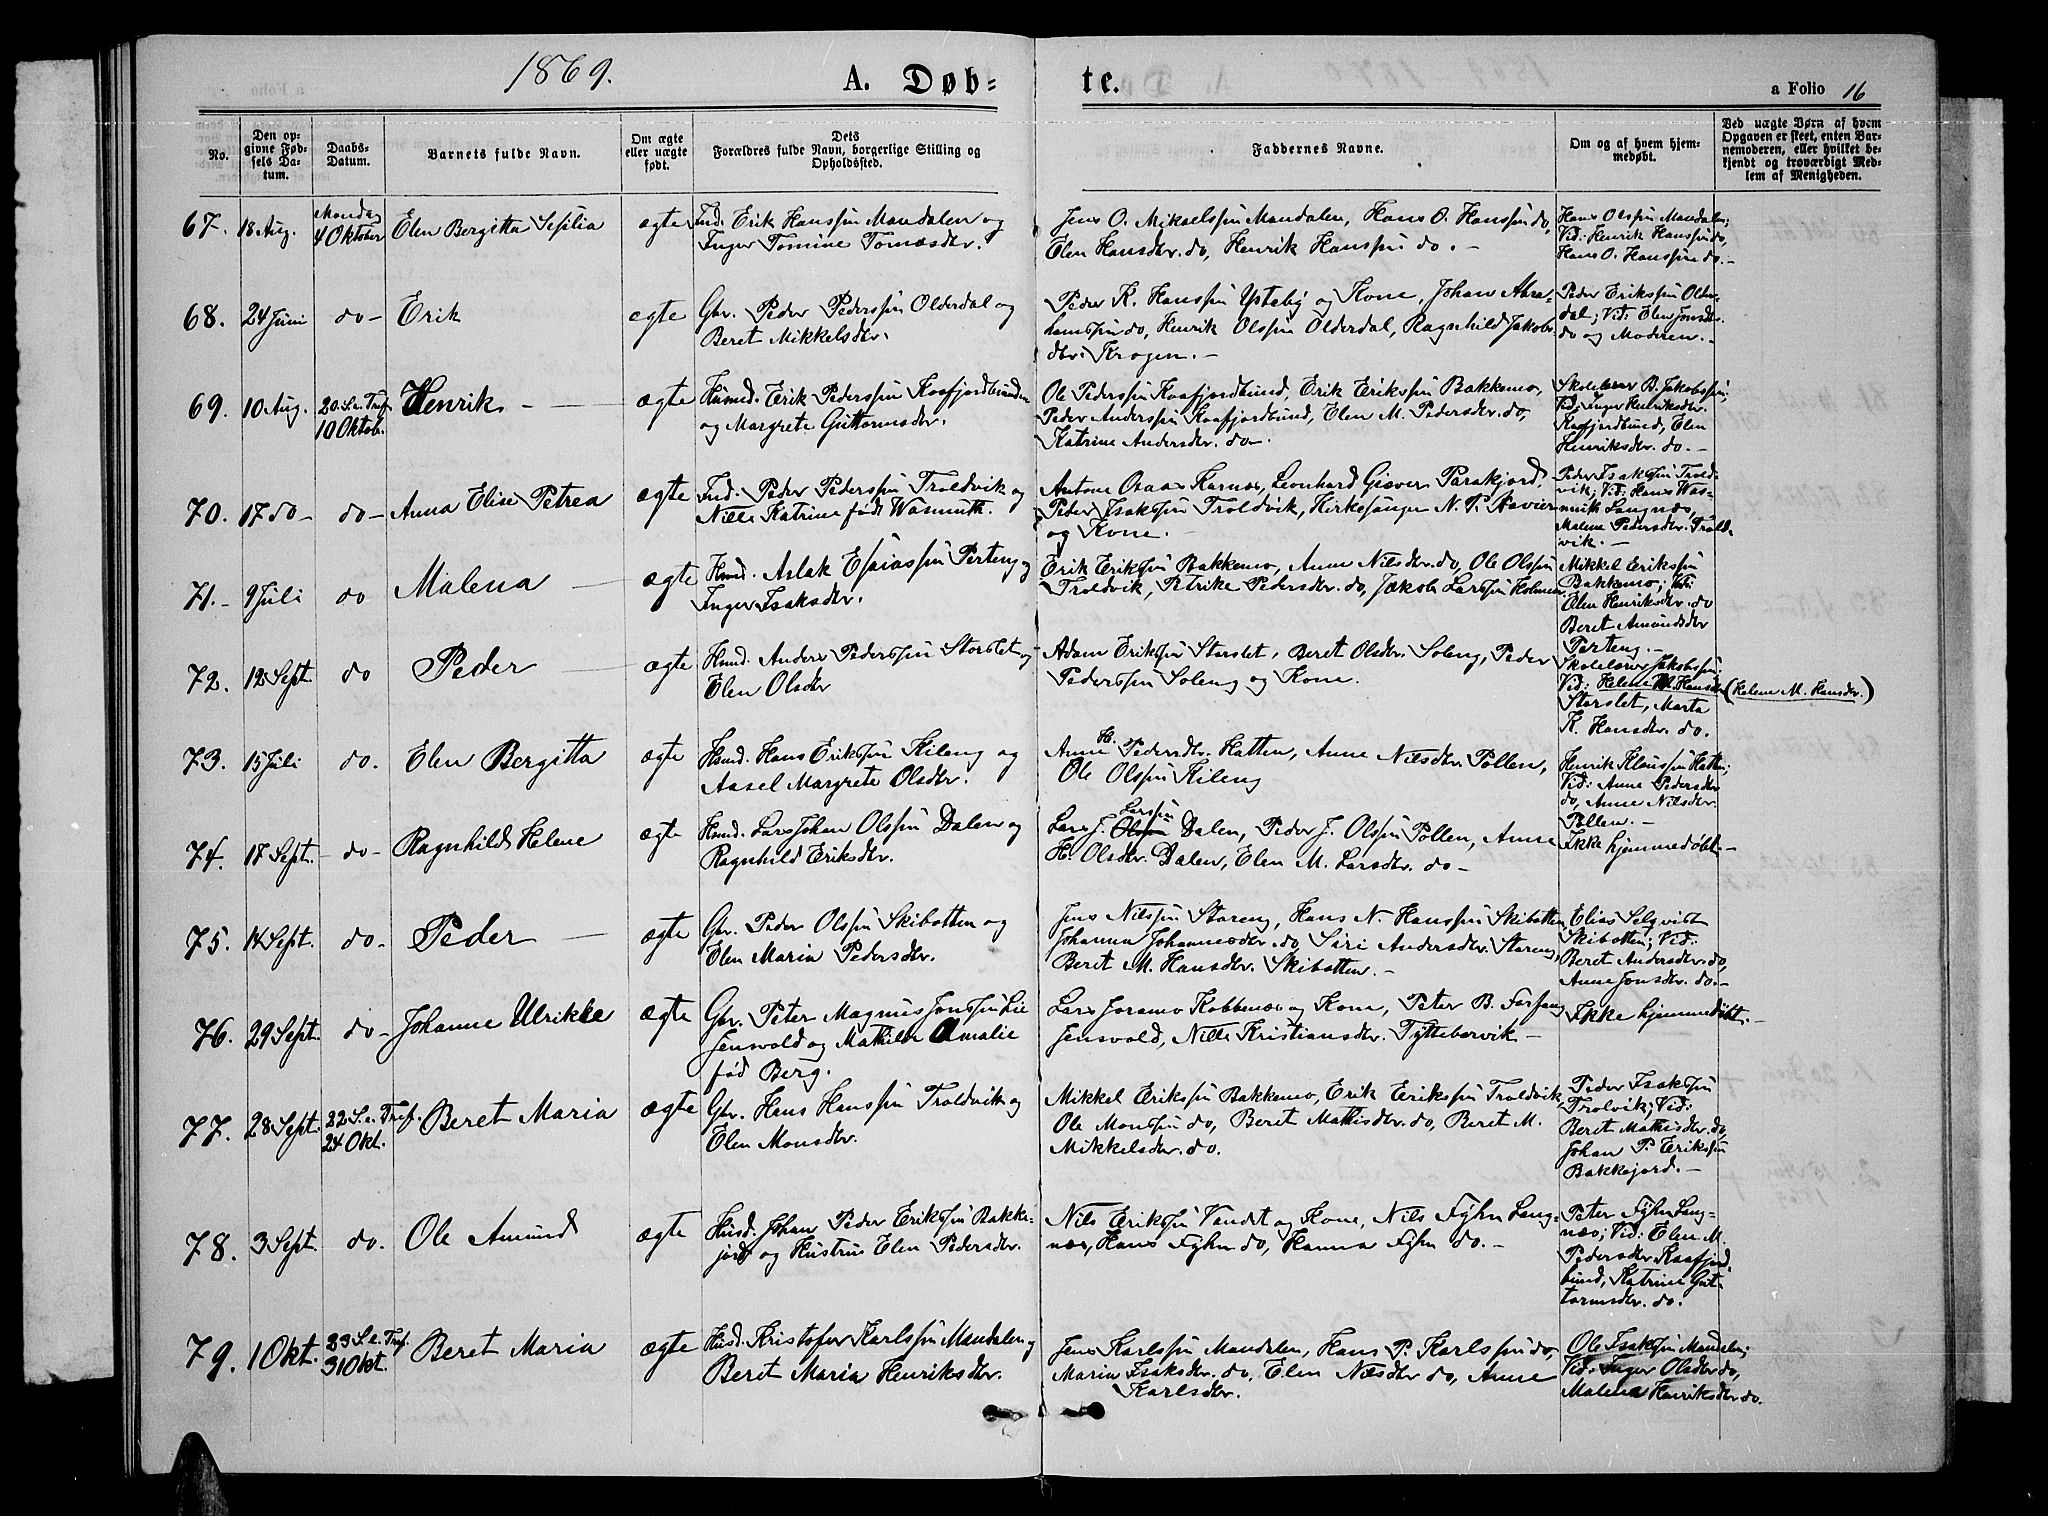 1869.
A. Døb=
te.
a Folio 16
No.
Den op=
givne Fød=
sels Da=
tum.
Daabs=
Datum.
Barnets fulde Navn.
Om ægte
eller uægte
født.
Dets
Forældres fulde Navn, borgerlige Stilling og
Opholdssted.
Faddernes Navne.
Om og af hvem hjem=
medøbt.
Ved uægte Børn af hvem
Opgaven er skeet, enten Bar=
nemoderen, eller hvilket be=
kjendt og troværdigt Med=
lem af Menigheden.
67. 18 Aug. Mandag
4 Oktober Elen Bergitta Sesilia ægte Ind. Erik Hanssøn Mandalen og
Inger Tomine Tomasdtr.
Jens O. Mikaelssøn Mandalen, Hans O. Hanssøn do,
Elen Hansdtr. do, Henrik Hanssøn do. -
Hans Olssøn Mandalen;
Vid: Henrik Hanssøn do,
Hans O. Hanssøn do. -
68. 24 Juni do - Erik ægte Gbr. Peder Pederssøn Olderdal og
Beret Mikkelsdtr.
Peder K. Hanssøn Ysteby og Kone, Johan Abra=
hamssøn do, Henrik Olssøn Olderdal, Ragnhild Jakobs=
dtr. Krogen. -
Peder Erikssøn Older=
dal; Vid: Elen Jonsdtr.
do og Moderen. -
69. 10 Aug. 20. S. e. Tref.
10 Oktob. Henrik - ægte Husmd. Erik Pederssøn Kaafjordbunden
og Margrete Guttormsdtr.
Ole Pederssøn Kaafjordbund, Erik Erikssøn Bakkemo,
Peder Anderssøn Kaafjordbund, Elen M. Pedersdtr. do,
Katrine Andersdtr. do -.
Skolelærer B. Jakobssøn;
Vid: Inger Henriksdtr.
Kaafjordbund, Elen
Henriksdtr. do. -
70. 17 do - do - Anna Elise Petrea ægte Ind. Peder Pederssøn Troldvik og
Nille Katrine født Wasmuth.
Antone Karnes, Leonhard Giæver
Peder Isakssøn Troldvik, Kirkesanger N. P. Xavier
og Kone. -
Peder Isakssøn Trold=
vik; Vid: Hans Was=
muth Langnæs,
Malene Pedersdtr. Trold=
vik. -
71. - 9 Juli do Malena - ægte Hsmd. Aslak Esaiassøn Perteng og
Inger Isaksdtr.
Erik Erikssøn Bakkemo, Anne Nilsdtr. do, Ole Olssøn
Troldvik, Pedersdtr. do, Jakob Larssøn Holmen.
Mikkel Erikssøn
Bakkemo; Vid:
Elen Henriksdtr. do
Beret Amundsdtr
Perteng. -
72. 12 Sept. do Peder - ægte Hsmd. Anders Pederssøn Storslet og
Elen Olsdtr
Adam Erikssøn Storslet, Beret Olsdtr. Soleng, Peder
Pederssøn Soleng og Kone.
Skolelærer Jakobssøn;
Vid: Helene M. Hansdtr
Storslet, Marta
K. Hansdtr. do.
(Helene M. Hansdtr.)
73. 15 Juli do. Elen Bergitta ægte Hsmd. Hans Erikssøn Kileng og
Aasel Margrete Olsdtr.
Anne H. Pedersdtr. Hatten, Anne Nilsdtr. Pollen,
Ole Olssøn Kileng
Henrik Klaussøn Hatten;
Vid: Anne Pedersdtr
do, Anne Nilsdtr.
Pollen. -
74. 17 Sept. - do - Ragnhild Helene ægte Hsmd. Lars Johan Olssøn Dalen og
Ragnhild Eriksdtr.
Larssøn
Lars J. Olssøn Dalen, Peder J. Olssøn Pollen, Anne
H. Olsdtr. Dalen, Elen M. Larsdtr. do -
Ikke hjemmedøbt. -
75. 14 Sept. do. Peder - ægte Gbr. Peder Olssøn Skibotten og
Elen Maria Pedersdtr.
Jens Nilssøn Storeng, Hans N. Hanssøn Skibotten,
Johanna Johannesdtr. do, Siri Andersdtr. Storeng,
Beret M. Hansdtr. Skibotten. -
Elias Selqvist
Skibotten; Vid:
Beret Andersdtr. do,
Anne Jonsdtr. do. -
76. 29 Sept. do - Johanne Ulrikke ægte Gbr. Peter Magnus Jonssøn Lie
Jensvold og Mathilde Amalie
fød Berg.
Lars Joramo Kobbenes og Kone, Peter B. Forfang
Jensvold, Nille Kristiansdtr. Tyttebærvik -
Ikke hjemmedøbt. -
77. 28 Sept. 22 S. e. Tref.
24 Okt. Beret Maria ægte Gbr. Hans Hanssøn Troldvik og
Elen Monsdtr.
Mikkel Erikssøn Bakkemo, Erik Erikssøn Troldvik,
Ole Monssøn do, Beret Mathisdtr. do, Beret M.
Mikkelsdtr. do.
Peder Isakssøn
Trolvik; Vid:
Beret Mathisdtr. do,
Johan P. Erikssøn
Bakkejord. -
78. 3 Sept. do. Ole Amund ægte Husd. Johan Peder Erikssøn Bakke=
jord og Hustru Elen Pedersdtr.
Nils Erikssøn Vandet og Kone, Nils Fyhn Lang=
næs, Hans Fyhn do, Hanna Fyhn do. -
Peter Fyhn Lang=
næs; Vid: Elen M.
Pedersdtr Kaafjord=
bund, Katrine Gut=
tormsdtr. do.
79. 1 Okt. 23 S. e. Tref.
31 Okt. Beret Maria ægte Husd. Kristofer Karlssøn Mandalen og
Beret Maria Henriksdtr.
Jens Karlssøn Mandalen, Hans P. Karlssøn do,
Maria Isaksdtr. do, Elen Nilsdtr do, Anne
Karlsdtr.
Ole Isakssøn Mandalen;
Vid: Inger Olsdtr do,
Malena Henriksdtr do.